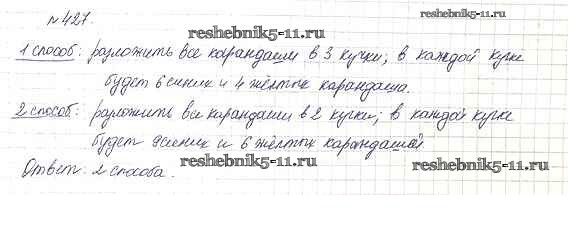 №427.
reshebnik5-11.ru
reshebnik5-11.ru
1 способ: разложить все карандаши в 3 кучки; в каждой кучке
будет 6 синих и 4 жёлтых карандаша.
2 способ: разложить все карандаши в 2 кучки; в каждой кучке
будет 9 синих и 6 жёлтых карандашей.
reshebnik5-11.ru
reshebnik5-11.ru
Ответ: 2 способа.